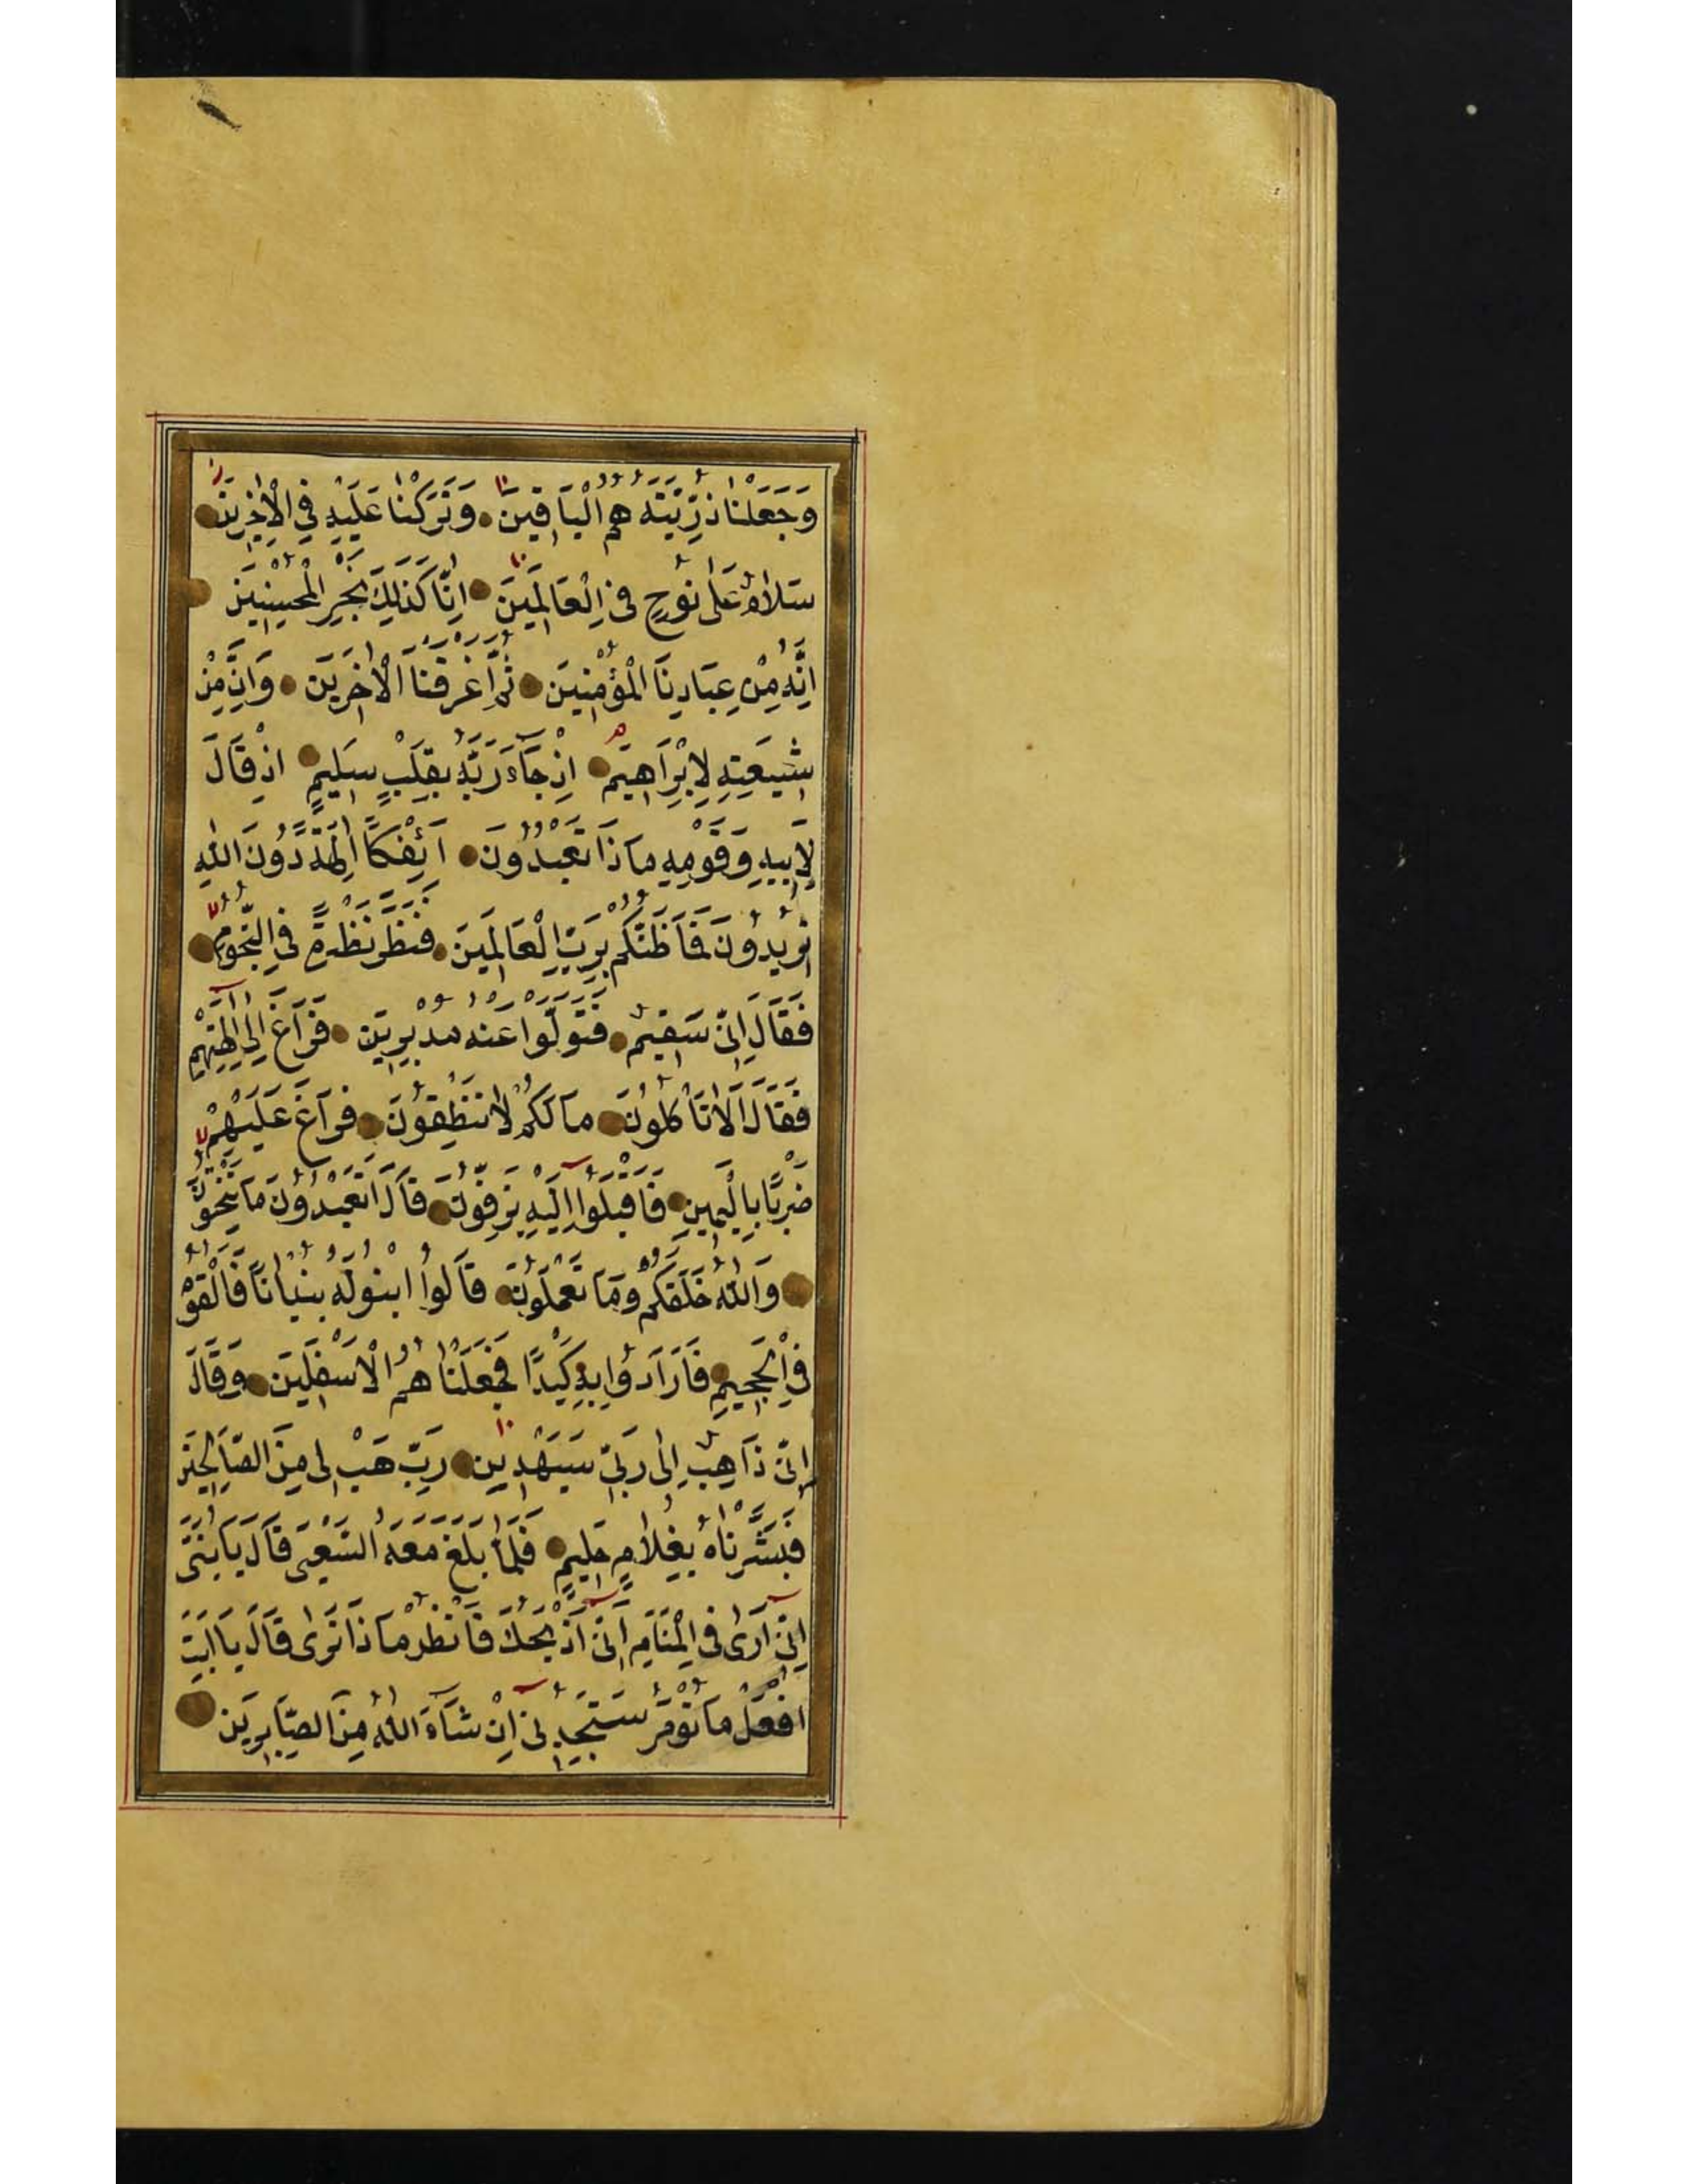 وَجَعَلْنَا ذُرِّيَّتَهُ هُمُ الْبَاقِينَ وَتَرَكْنَا عَلَيْهِ فِي الْاٰخِرِينَ
سَلَامٌ عَلٰى نُوحٍ فِي الْعَالَمِينَ اِنَّا كَذٰلِكَ نَجْزِي الْمُحْسِنِينَ
اِنَّهُ مِنْ عِبَادِنَا الْمُؤْمِنِينَ ثُمَّ اَغْرَقْنَا الْاٰخَرِينَ وَاِنَّ مِنْ
شِيعَتِهِ لَاِبْرَاهِيمَ اِذْ جَاءَ رَبَّهُ بِقَلْبٍ سَلِيمٍ اِذْ قَالَ
لِاَبِيهِ وَقَوْمِهِ مَاذَا تَعْبُدُونَ اَئِفْكًا اٰلِهَةً دُونَ اللهِ
تُرِيدُونَ فَمَا ظَنُّكُمْ بِرَبِّ الْعَالَمِينَ فَنَظَرَ نَظْرَةً فِي النُّجُومِ
فَقَالَ اِنِّي سَقِيمٌ فَتَوَلَّوْا عَنْهُ مُدْبِرِينَ فَرَاغَ اِلٰى اٰلِهَتِهِمْ
فَقَالَ اَلَا تَأْكُلُونَ مَا لَكُمْ لَا تَنْطِقُونَ فَرَاغَ عَلَيْهِمْ
ضَرْبًا بِالْيَمِينِ فَاَقْبَلُوا اِلَيْهِ يَزِفُّونَ قَالَ اَتَعْبُدُونَ مَا تَنْحِتُونَ
وَاللهُ خَلَقَكُمْ وَمَا تَعْمَلُونَ قَالُوا ابْنُوا لَهُ بُنْيَانًا فَاَلْقُوهُ
فِي الْجَحِيمِ فَاَرَادُوا بِهِ كَيْدًا فَجَعَلْنَاهُمُ الْاَسْفَلِينَ وَقَالَ
اِنِّي ذَاهِبٌ اِلٰى رَبِّي سَيَهْدِينِ رَبِّ هَبْ لِي مِنَ الصَّالِحِينَ
فَبَشَّرْنَاهُ بِغُلَامٍ حَلِيمٍ فَلَمَّا بَلَغَ مَعَهُ السَّعْيَ قَالَ يَا بُنَيَّ
اِنِّي اَرٰى فِي الْمَنَامِ اَنِّي اَذْبَحُكَ فَانْظُرْ مَاذَا تَرٰى قَالَ يَا اَبَتِ
افْعَلْ مَا تُؤْمَرُ سَتَجِدُنِي اِنْ شَاءَ اللهُ مِنَ الصَّابِرِينَ